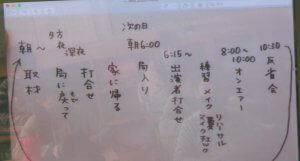 朝〜
夕方
夜
深夜
次の日
朝6:00
6:15〜
8:00〜
10:00
10:30
取材
局に戻って
打合せ
家に帰る
局入り
出演者打合せ
練習 メイク
リハーサル
マイクチェック
オンエアー
反省会